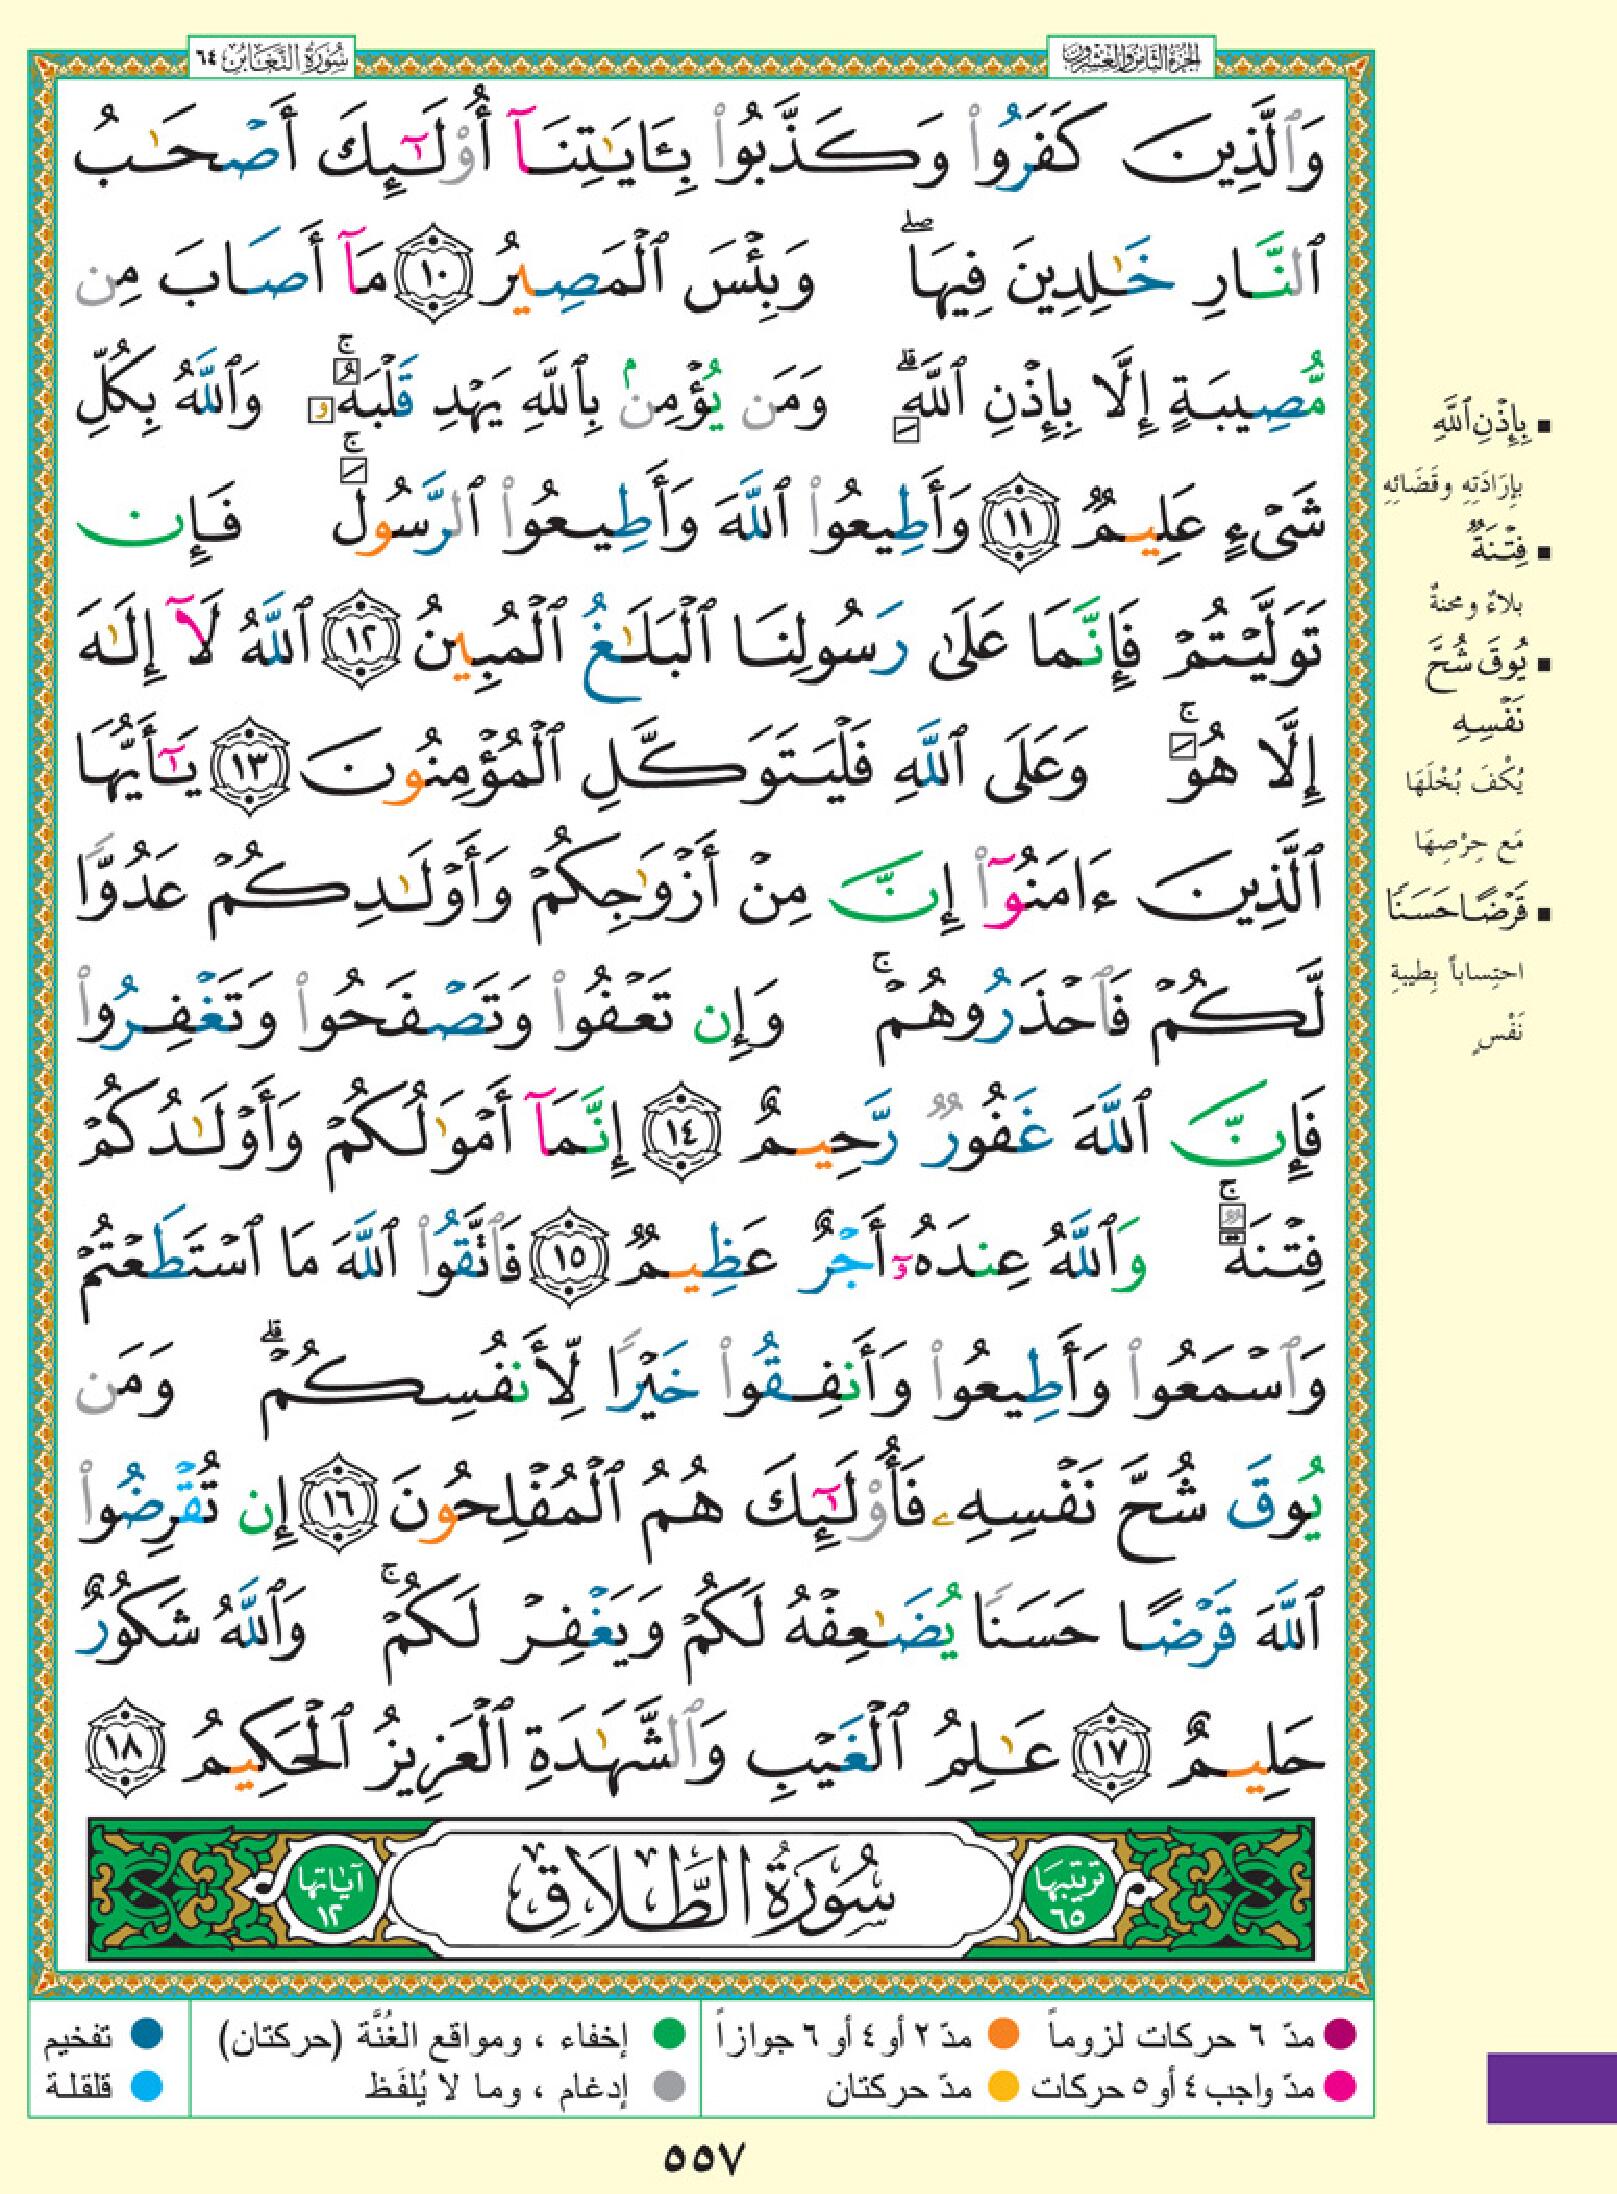 الجزء الثامن والعشرون
سورة التغابن ٦٤
وَٱلَّذِينَ كَفَرُوا۟ وَكَذَّبُوا۟ بِـَٔايَـٰتِنَآ أُو۟لَـٰٓئِكَ أَصْحَـٰبُ
ٱلنَّارِ خَـٰلِدِينَ فِيهَاۖ وَبِئْسَ ٱلْمَصِيرُ ١٠ مَآ أَصَابَ مِن
مُّصِيبَةٍ إِلَّا بِإِذْنِ ٱللَّهِۗ وَمَن يُؤْمِنۢ بِٱللَّهِ يَهْدِ قَلْبَهُۥۚ وَٱللَّهُ بِكُلِّ
شَىْءٍ عَلِيمٌ ١١ وَأَطِيعُوا۟ ٱللَّهَ وَأَطِيعُوا۟ ٱلرَّسُولَۚ فَإِن
تَوَلَّيْتُمْ فَإِنَّمَا عَلَىٰ رَسُولِنَا ٱلْبَلَـٰغُ ٱلْمُبِينُ ١٢ ٱللَّهُ لَآ إِلَـٰهَ
إِلَّا هُوَۚ وَعَلَى ٱللَّهِ فَلْيَتَوَكَّلِ ٱلْمُؤْمِنُونَ ١٣ يَـٰٓأَيُّهَا
ٱلَّذِينَ ءَامَنُوٓا۟ إِنَّ مِنْ أَزْوَٰجِكُمْ وَأَوْلَـٰدِكُمْ عَدُوًّا
لَّكُمْ فَٱحْذَرُوهُمْۚ وَإِن تَعْفُوا۟ وَتَصْفَحُوا۟ وَتَغْفِرُوا۟
فَإِنَّ ٱللَّهَ غَفُورٌ رَّحِيمٌ ١٤ إِنَّمَآ أَمْوَٰلُكُمْ وَأَوْلَـٰدُكُمْ
فِتْنَةٌۚ وَٱللَّهُ عِندَهُۥٓ أَجْرٌ عَظِيمٌ ١٥ فَٱتَّقُوا۟ ٱللَّهَ مَا ٱسْتَطَعْتُمْ
وَٱسْمَعُوا۟ وَأَطِيعُوا۟ وَأَنفِقُوا۟ خَيْرًا لِّأَنفُسِكُمْۗ وَمَن
يُوقَ شُحَّ نَفْسِهِۦ فَأُو۟لَـٰٓئِكَ هُمُ ٱلْمُفْلِحُونَ ١٦ إِن تُقْرِضُوا۟
ٱللَّهَ قَرْضًا حَسَنًا يُضَـٰعِفْهُ لَكُمْ وَيَغْفِرْ لَكُمْۚ وَٱللَّهُ شَكُورٌ
حَلِيمٌ ١٧ عَـٰلِمُ ٱلْغَيْبِ وَٱلشَّهَـٰدَةِ ٱلْعَزِيزُ ٱلْحَكِيمُ ١٨
ترتيبها ٦٥
سُورَةُ الطَّلَاقِ
آياتها ١٢
▪ بِإِذْنِ ٱللَّهِ
بإرَادَتِهِ وقَضَائِهِ
▪ فِتْنَةٌ
بلاءٌ ومحنةٌ
▪ يُوقَ شُحَّ
نَفْسِهِ
يُكْفَ بُخْلَهَا
مَع حِرْصِهَا
▪ قَرْضًا حَسَنًا
احتِساباً بِطيبةِ
نَفْسٍ
مدّ ٦ حركات لزوماً
مدّ ٢ أو ٤ أو ٦ جوازاً
إخفاء ، ومواقع الغُنَّة (حركتان)
تفخيم
مدّ واجب ٤ أو ٥ حركات
مدّ حركتان
إدغام ، وما لا يُلفَظ
قلقلة
٥٥٧